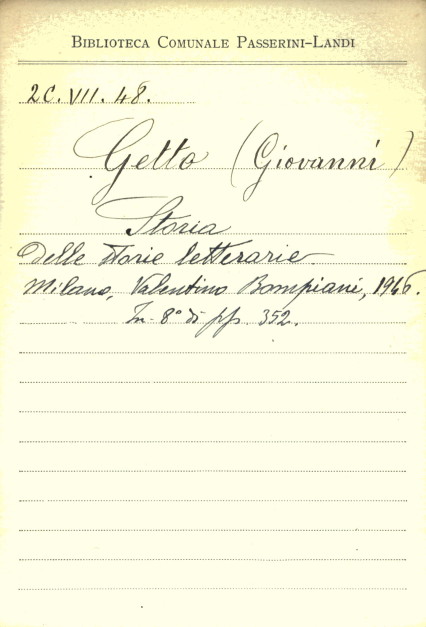 BIBLIOTECA COMUNALE PASSERINI-LANDI
2C. VII. 48.
Getto (Giovanni)
Storia
delle storie letterarie
Milano, Valentino Bompiani, 1946.
In-8° di pp. 352.